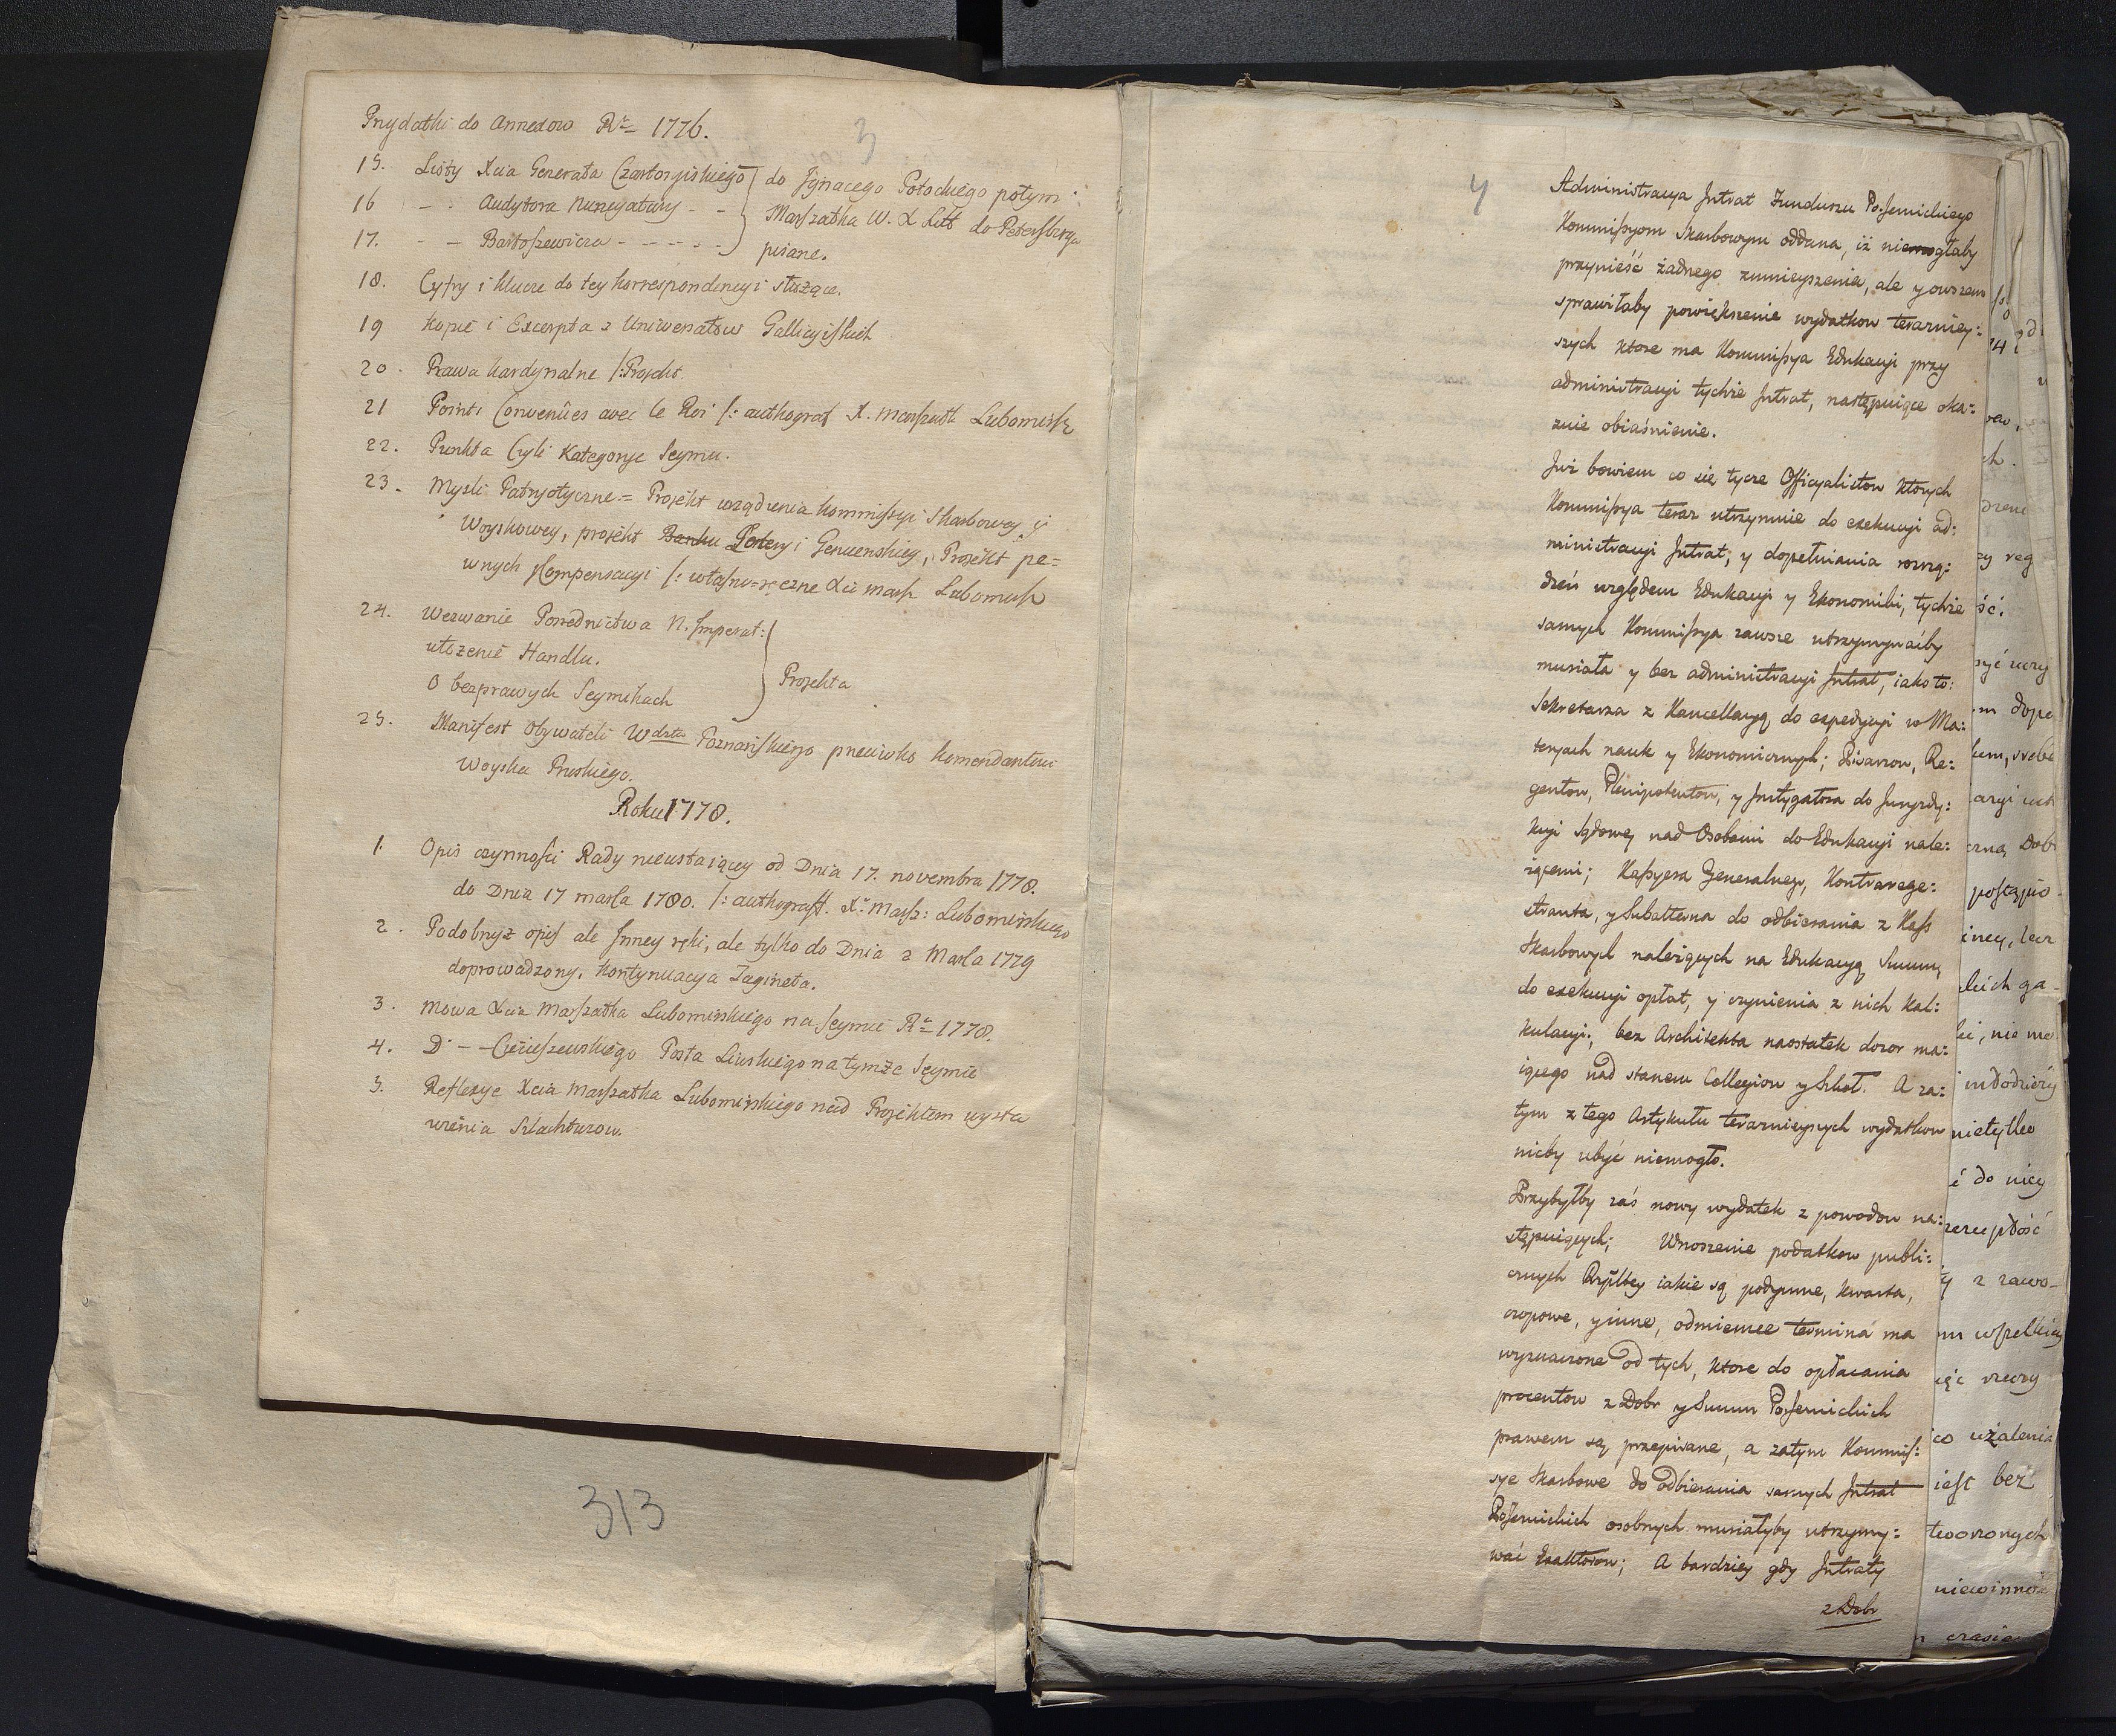 3
Przydatki do Annexow Rᵘ 1776.
15. Listy Xcia Generała Czartoryiskiego
16 - - Audytora Nuncyatury - -
17. - - Bartoszewicza - - - - - -
do Jgnacego Potockiego potym
Marszałka W. X Litt do Petersburga
pisane.
18. Cyfry i klucze do tey korrespondencyi służące.
19 Kopie i Excerpta z Uniwersałow Gallicyiskich
20. Prawa kardynalne /: Projekt.
21 Points Convenües avec le Roi /: authograf X. Marszałk Lubomirsk
22. Punkta Czyli Kategorye Seymu.
23. Mysli Patryotyczne = Projekt urządzenia Kommissyi Skarbowey y
Woyskowey, projekt Banku i Genuenskiey, Projekt pe=
wnych Kompensacyi /: własno=ręczne Xcia Marsz Lubomirsk
24. Wezwanie Posrednictwa N. Imperat:
ułożenie Handlu.
O bezprawych Seymikach
Projekta
25. Manifest Obywateli Wdztw Poznańskiego przeciwko Komendantowi
Woyska Pruskiego.
Roku 1778.
1. Opis czynności Rady nieustaiącey od Dnia 17. novembra 1778.
do Dnia 17 marca 1780. /: authograff. Xᵃ Marsz: Lubomirskiego
2. Podobnyż opis ale Inney ręki, ale tylko do Dnia 2 Marca 1779
doprowadzony. Kontynuacya Zagineła.
3. Mowa Xcia Marszałka Lubomirskiego na Seymie Rᵘ 1778.
4. Dº - - Cieciszewskiego Posta Liwskiego na tymże Seymie
5. Reflexye Xcia Marszałka Lubomirskiego nad Projektem wysta
wienia Szlachtuzow.
313
4
Administracya Intrat Funduszu Pojezuickiego
Kommissyom Skarbowym oddana, iż niemogłaby
przynieść żadnego zmnieyszenia, ale y owszem
sprawiłaby powiększenie wydatkow teraźniey:
szych ktore ma Kommissya Edukacyi przy
administracyi tychże Intrat, następuiące oka:
zuie obiaśnienie.
Już bowiem co się tycze Officyalistow ktorych
Kommissya teraz utrzymuie do exekucyi ad:
ministracyi Intrat, y dopełniania rozrzą:
dzeń względem Edukacyi y Ekonomiki, tychże
samych Kommissya zawsze utrzymywaćby
musiała y bez administracyi Intrat, iako to:
Sekretarza z Kancellaryą do expedycyi w Ma:
teryach nauk y Ekonomicznych; Pisarzow, Re:
gentow, Plenipotentow, y Instygatora do Juryzdy:
kcyi Sądowey nad Osobami do Edukacyi nale:
żącemi; Kassyera Generalnego, Kontrarege:
stranta, y Subalterna do odbierania z Kass
Skarbowych należących na Edukacyą Summ,
do exekucyi opłat, y czynienia z nich kal:
kulacyi; bez Architekta naostatek dozor ma:
iącego nad stanem Collegiow y Szkoł. A za:
tym z tego Artykułu teraźnieyszych wydatkow
nicby ubyć niemogło.
Przybyłby zaś nowy wydatek z powodow na:
stępuiących; Wnoszenie podatkow publi:
cznych Rzpltey iakie są podymne, kwarta,
czopowe, y inne, odmienne termina ma
wyznaczone od tych, ktore do opłacania
procentow z Dobr y Summ Pojezuickich
prawem są przepisane, a zatym Kommis:
sye Skarbowe do odbierania samych Intrat
Pojezuickich osobnych musiałyby utrzymy:
wać Exaktorow; A bardziey gdy Intraty
z Dobr